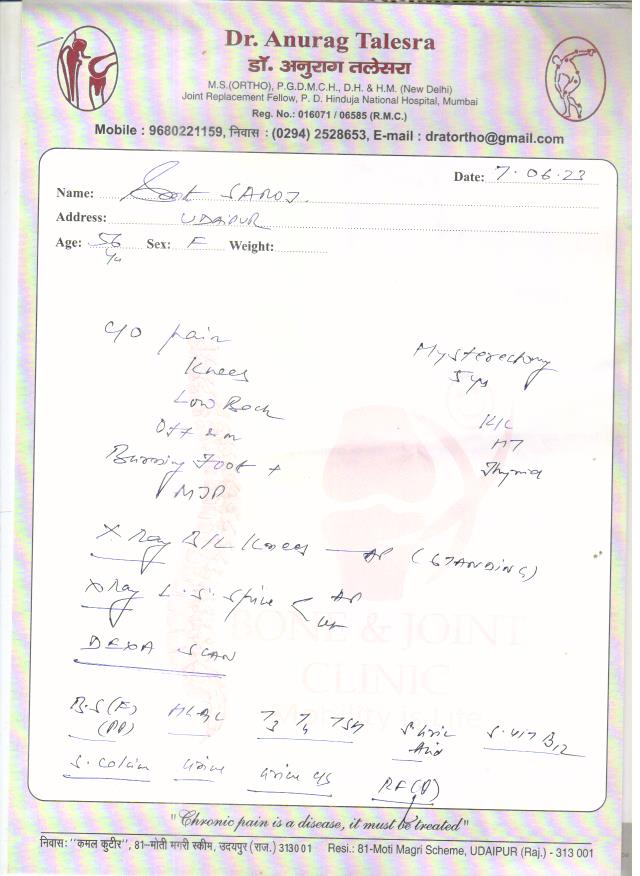 Dr. Anurag Talesra
डॉ. अनुराग तलेसरा
M.S.(ORTHO), P.G.D.M.C.H., D.H. & H.M. (New Delhi)
Joint Replacement Fellow, P. D. Hinduja National Hospital, Mumbai
Reg. No.: 016071 / 06585 (R.M.C.)
Mobile : 9680221159, निवास : (0294) 2528653, E-mail : dratortho@gmail.com
Date: 7.06.23
Name: SAROJ
Address: UDAIPUR
Age: 56 Yr Sex: F Weight:
C/O pain
Knees
Low Back
Off & on
Burning Foot +
MJP
Hysterectomy
5 yrs
K/C
HT
Thyroid
X Ray B/L Knees — AP (STANDING)
X Ray L.S. Spine < AP
Lat
DEXA SCAN
BONE & JOINT
CLINIC
Mobility in Life
B.S (F) HbA1C T3 T4 TSH S. Uric S. VIT B12
(PP) Acid
S. Calcium Urine Urine C/S RF (Q)
"Chronic pain is a disease, it must be treated"
निवास: "कमल कुटीर", 81-मोती मगरी स्कीम, उदयपुर (राज.) 313001 Resi.: 81-Moti Magri Scheme, UDAIPUR (Raj.) - 313 001